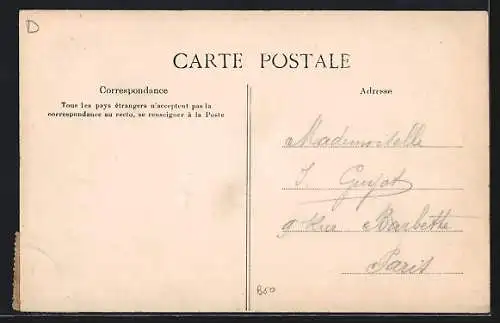 D
CARTE POSTALE
Correspondance
Tous les pays étrangers n'acceptent pas la
correspondance au recto, se renseigner à la Poste
Adresse
Mademoiselle
J. Guyot
9 Rue Barbette
Paris
B50